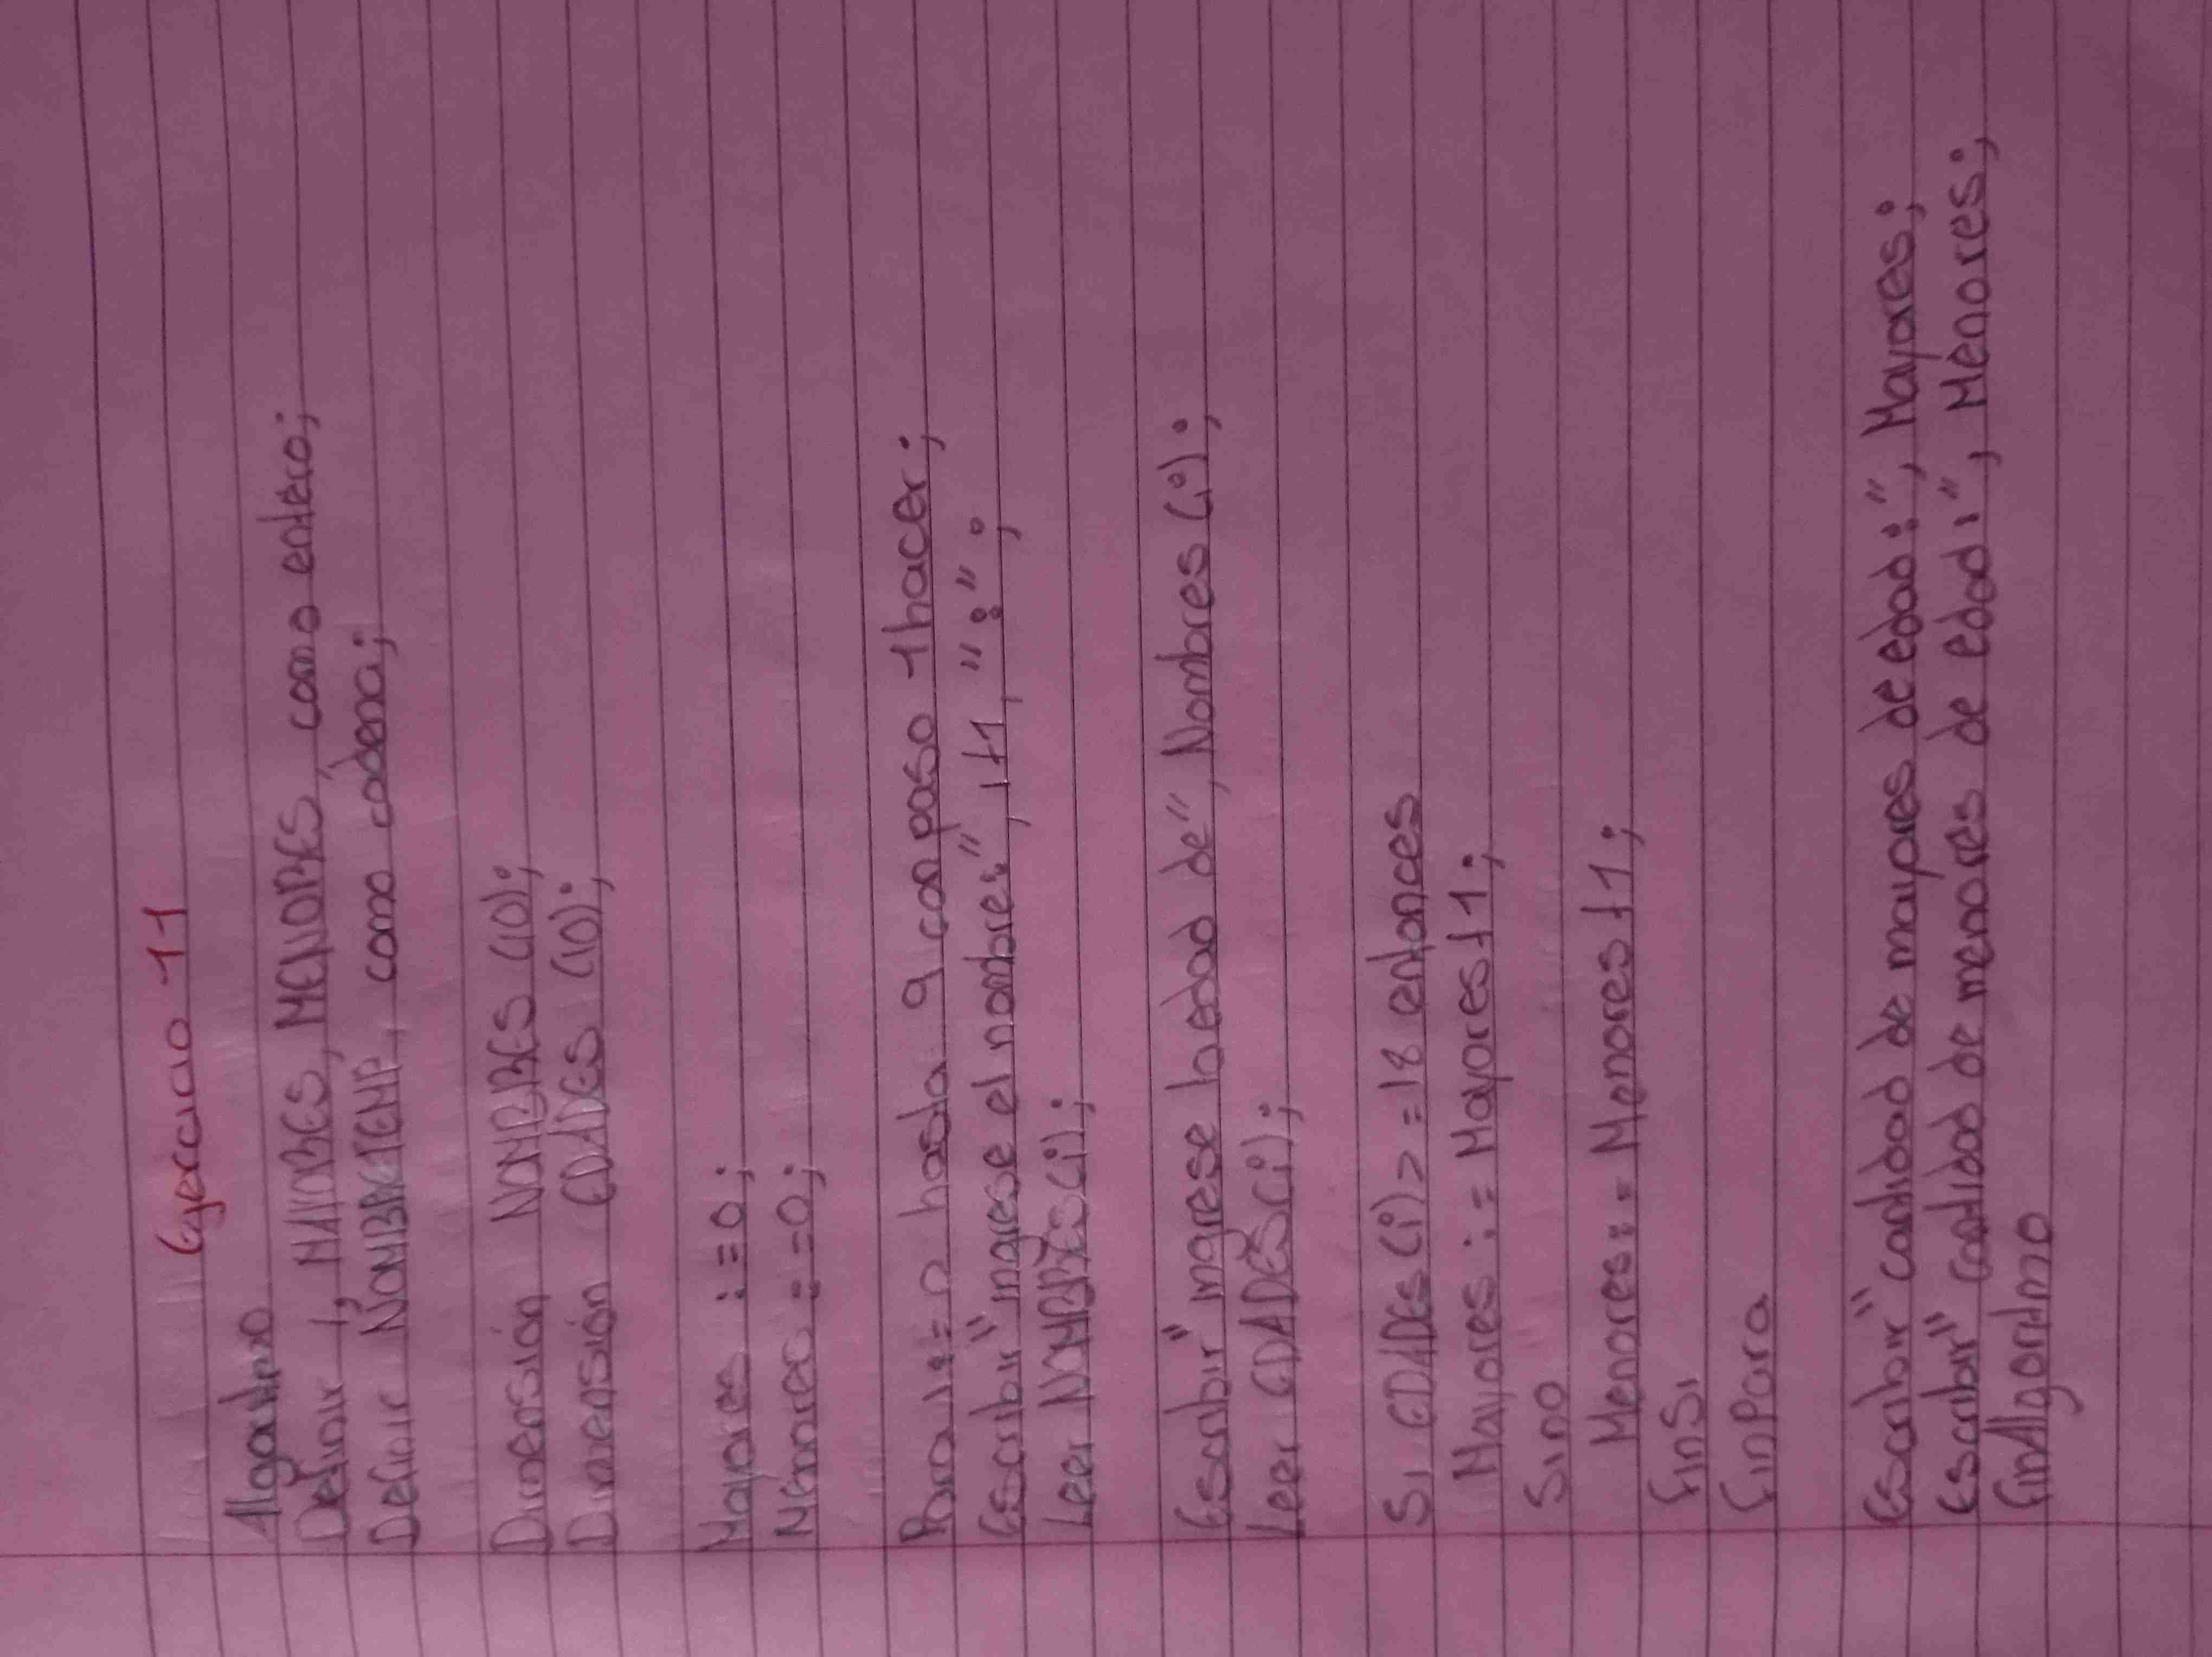 Ejercicio 11
Algoritmo
Definir i, MAYORES, MENORES, como entero;
Definir NOMBRETEMP, como cadena;
Dimensión NOMBRES (10);
Dimensión EDADES (10);
Mayores := 0;
Menores := 0;
Para i := 0 hasta 9 con paso 1 hacer;
Escribir "ingrese el nombre:", i+1, ":";
Leer NOMBRES(i);
Escribir "ingrese la edad de", Nombres (i);
Leer EDADES(i);
Si EDADES (i) >= 18 entonces
Mayores := Mayores +1;
Sino
Menores := Menores +1;
FinSi
FinPara
Escribir "cantidad de mayores de edad:", Mayores;
Escribir "cantidad de menores de edad:", Menores;
FinAlgoritmo